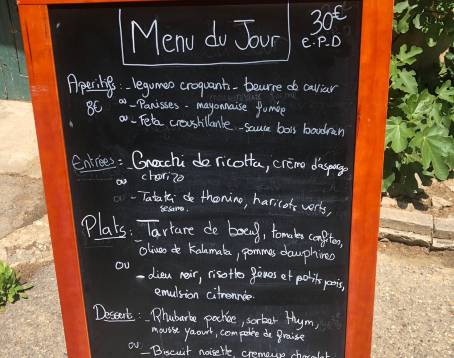 Menu du Jour
30€
E.P.D
Aperitifs : - legumes croquants - beurre de caviar
8€ ou - Panisses - mayonnaise fumée
ou - Feta croustillante - sauce bois boudran
Entrées : - Gnocchi de ricotta, crème d'asperge
chorizo
ou - Tatatki de thonine, haricots verts,
sesame.
Plats : - Tartare de boeuf, tomates confites,
Olives de Kalamata, pommes dauphines
ou - Lieu noir, risotto fèves et petits pois,
emulsion citronnée.
Dessert : - Rhubarbe pochée, sorbet thym,
mousse yaourt, compotée de fraise
ou - Biscuit noisette, cremeux chocolat